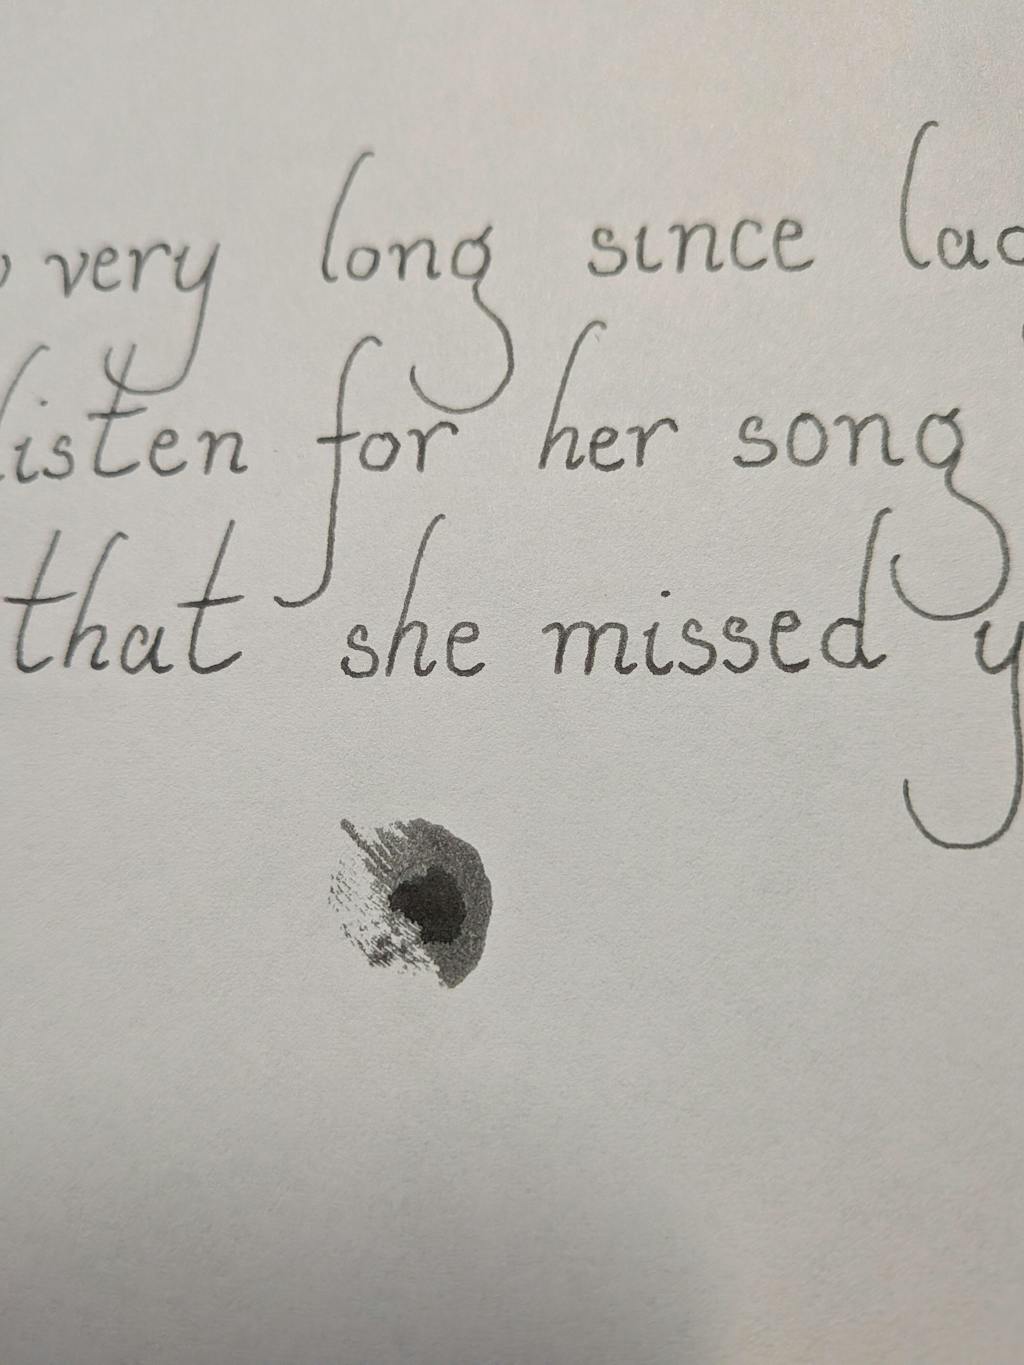 very long since
listen for her song
that she missed